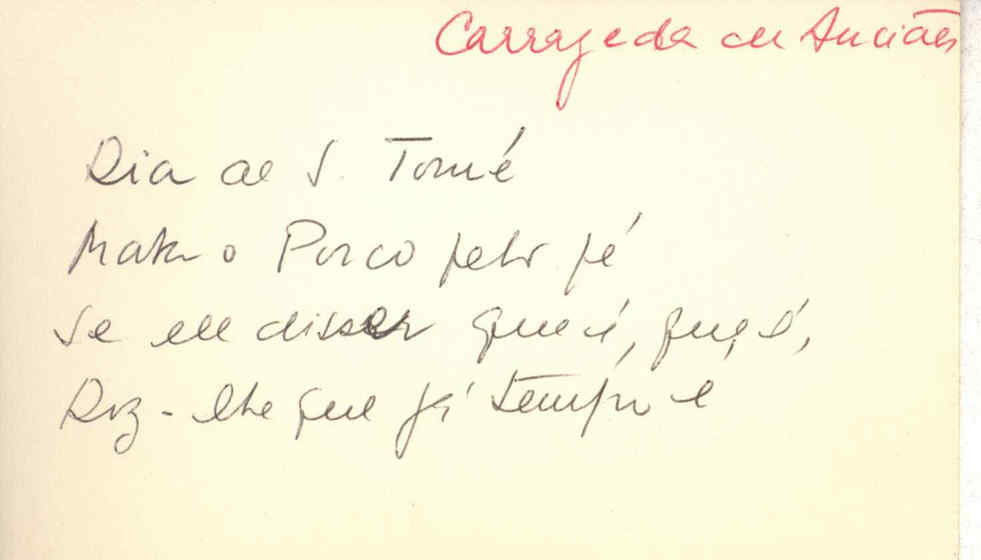 Carrazeda de Anciães
Dia de S. Tomé
Mata o Porco pelo pé
Se ele disser que é, que é,
Diz-lhe que já tempo é